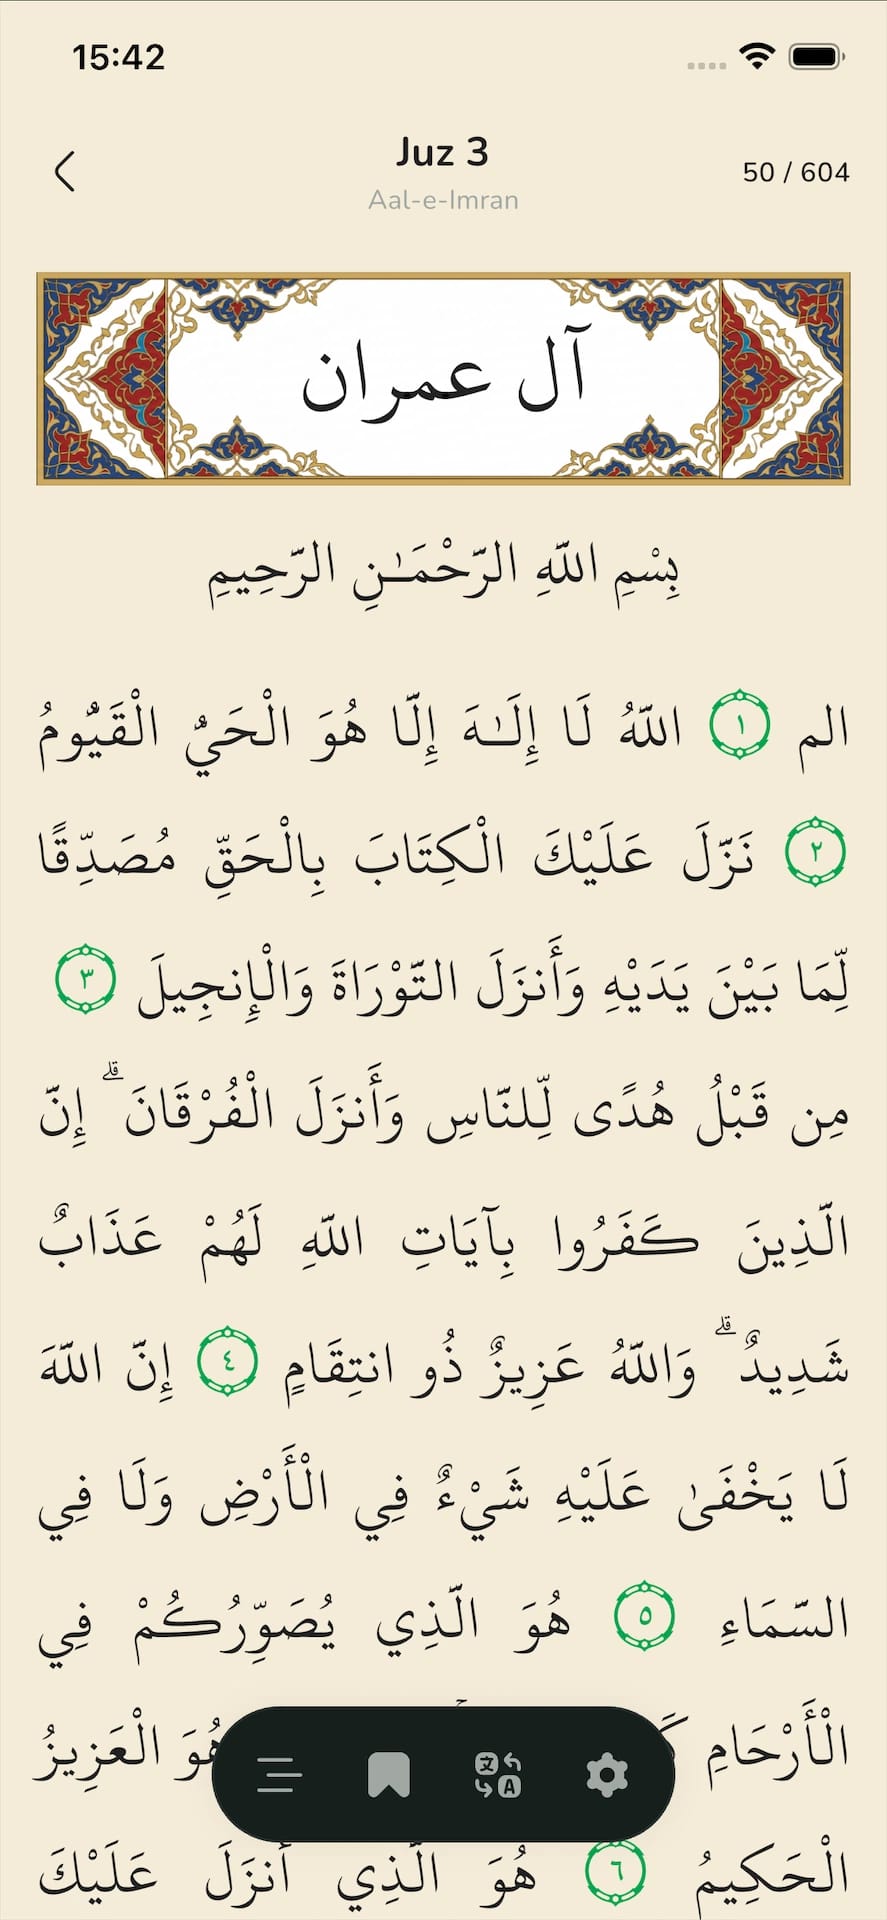 15:42
Juz 3
Aal-e-Imran
50 / 604
آل عمران
بِسْمِ اللَّهِ الرَّحْمَـٰنِ الرَّحِيمِ
الم ١ اللَّهُ لَا إِلَـٰهَ إِلَّا هُوَ الْحَيُّ الْقَيُّومُ
٢ نَزَّلَ عَلَيْكَ الْكِتَابَ بِالْحَقِّ مُصَدِّقًا
لِّمَا بَيْنَ يَدَيْهِ وَأَنزَلَ التَّوْرَاةَ وَالْإِنجِيلَ ٣
مِن قَبْلُ هُدًى لِّلنَّاسِ وَأَنزَلَ الْفُرْقَانَ ۗ إِنَّ
الَّذِينَ كَفَرُوا بِآيَاتِ اللَّهِ لَهُمْ عَذَابٌ
شَدِيدٌ ۗ وَاللَّهُ عَزِيزٌ ذُو انتِقَامٍ ٤ إِنَّ اللَّهَ
لَا يَخْفَىٰ عَلَيْهِ شَيْءٌ فِي الْأَرْضِ وَلَا فِي
السَّمَاءِ ٥ هُوَ الَّذِي يُصَوِّرُكُمْ فِي
الْأَرْحَامِ هُوَ الْعَزِيزُ
الْحَكِيمُ ٦ هُوَ الَّذِي أَنزَلَ عَلَيْكَ